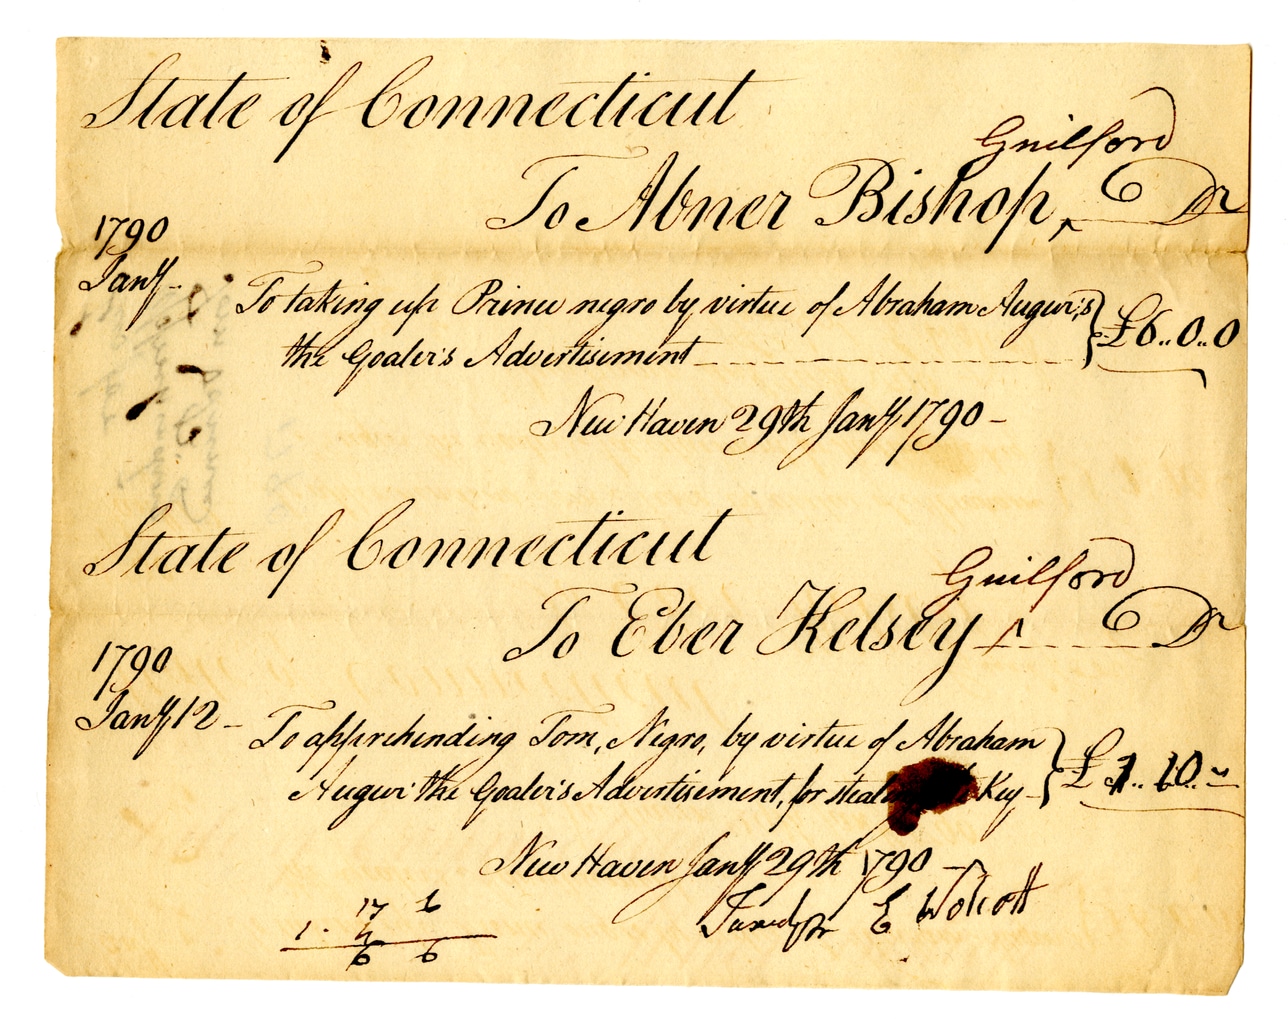 State of Connecticut
Guilford
To Abner Bishop, ^ Dr
1790
Jany..
To taking up Prince negro by virtue of Abraham Augur's
the Goaler's Advertisement
£6..0..0
New Haven 29th Jany 1790 -
State of Connecticut
Guilford
To Eber Kelsey ^ Dr
1790
Jany 12 -
To apprehending Tom, Negro, by virtue of Abraham
Augur the Goaler's Advertisement, for Key
£ 1.. 10..
New Haven Jany 29th 1790
E Wolcott
17 6
1.
6 6